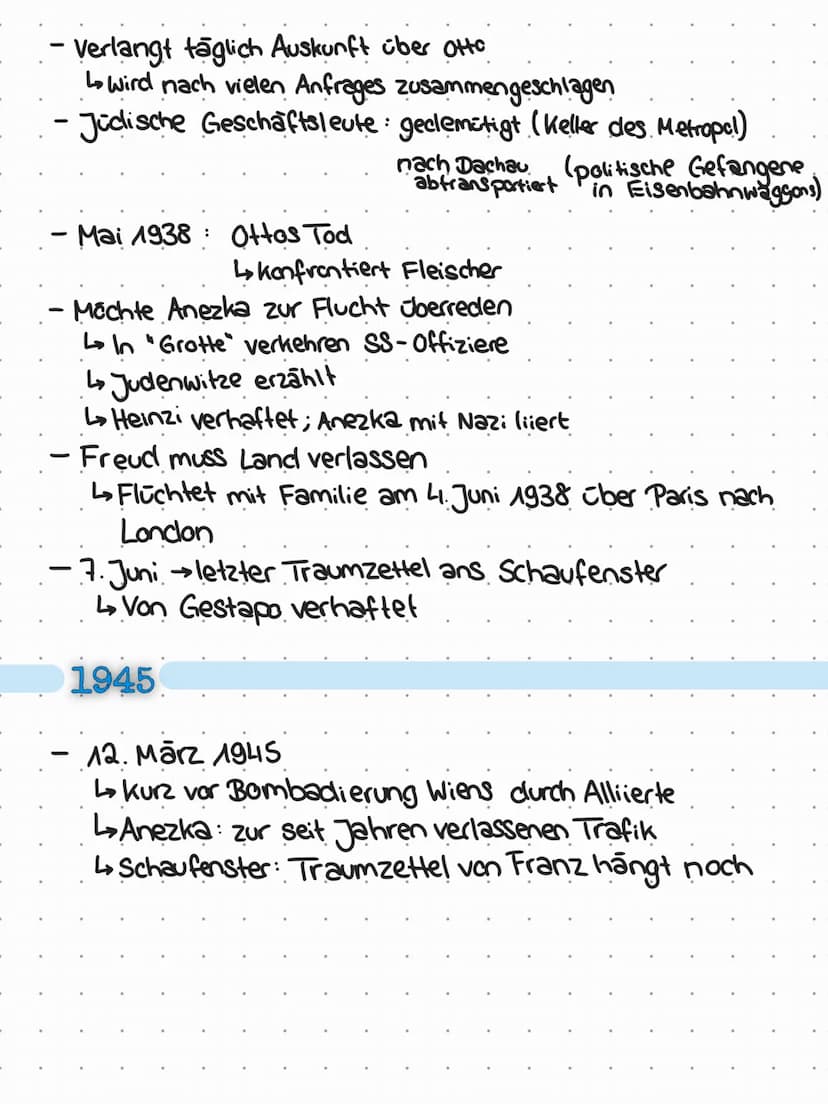 - Verlangt täglich Auskunft über Otto
↳ Wird nach vielen Anfrages zusammengeschlagen
- Jüdische Geschäftsleute: gedemütigt (Keller des Metropol)
nach Dachau (politische Gefangene
abtransportiert in Eisenbahnwaggons)
- Mai 1938: Ottos Tod
↳ konfrontiert Fleischer
- Möchte Anezka zur Flucht überreden
↳ In "Grotte" verkehren SS-Offiziere
↳ Judenwitze erzählt
↳ Heinzi verhaftet; Anezka mit Nazi liiert
- Freud muss Land verlassen
↳ Flüchtet mit Familie am 4. Juni 1938 über Paris nach
London
- 7. Juni → letzter Traumzettel ans Schaufenster
↳ Von Gestapo verhaftet
1945
- 12. März 1945
↳ Kurz vor Bombadierung Wiens durch Alliierte
↳ Anezka: zur seit Jahren verlassenen Trafik
↳ Schaufenster: Traumzettel von Franz hängt noch